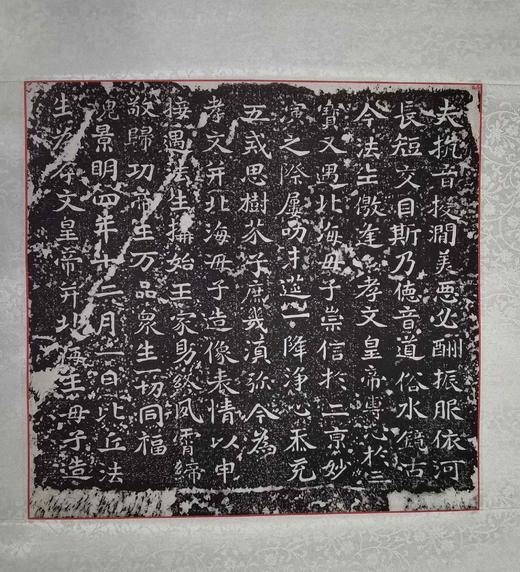 夫抗音投澗美惡必酬振服依河
長短交目斯乃德音道俗水鏡古
今法生儌逢孝文皇帝專心於三
寶又遇北海母子崇信於二京妙
演之際屢叨末筵一降淨心忝充
五戒思樹芥子庶幾須弥今為
孝文并北海母子造像表情以申
接遇法生構始王家助終夙霄締
敬歸功帝主万品眾生一切同福
魏景明四年十二月一日比丘法
生為孝文皇帝并北海王母子造